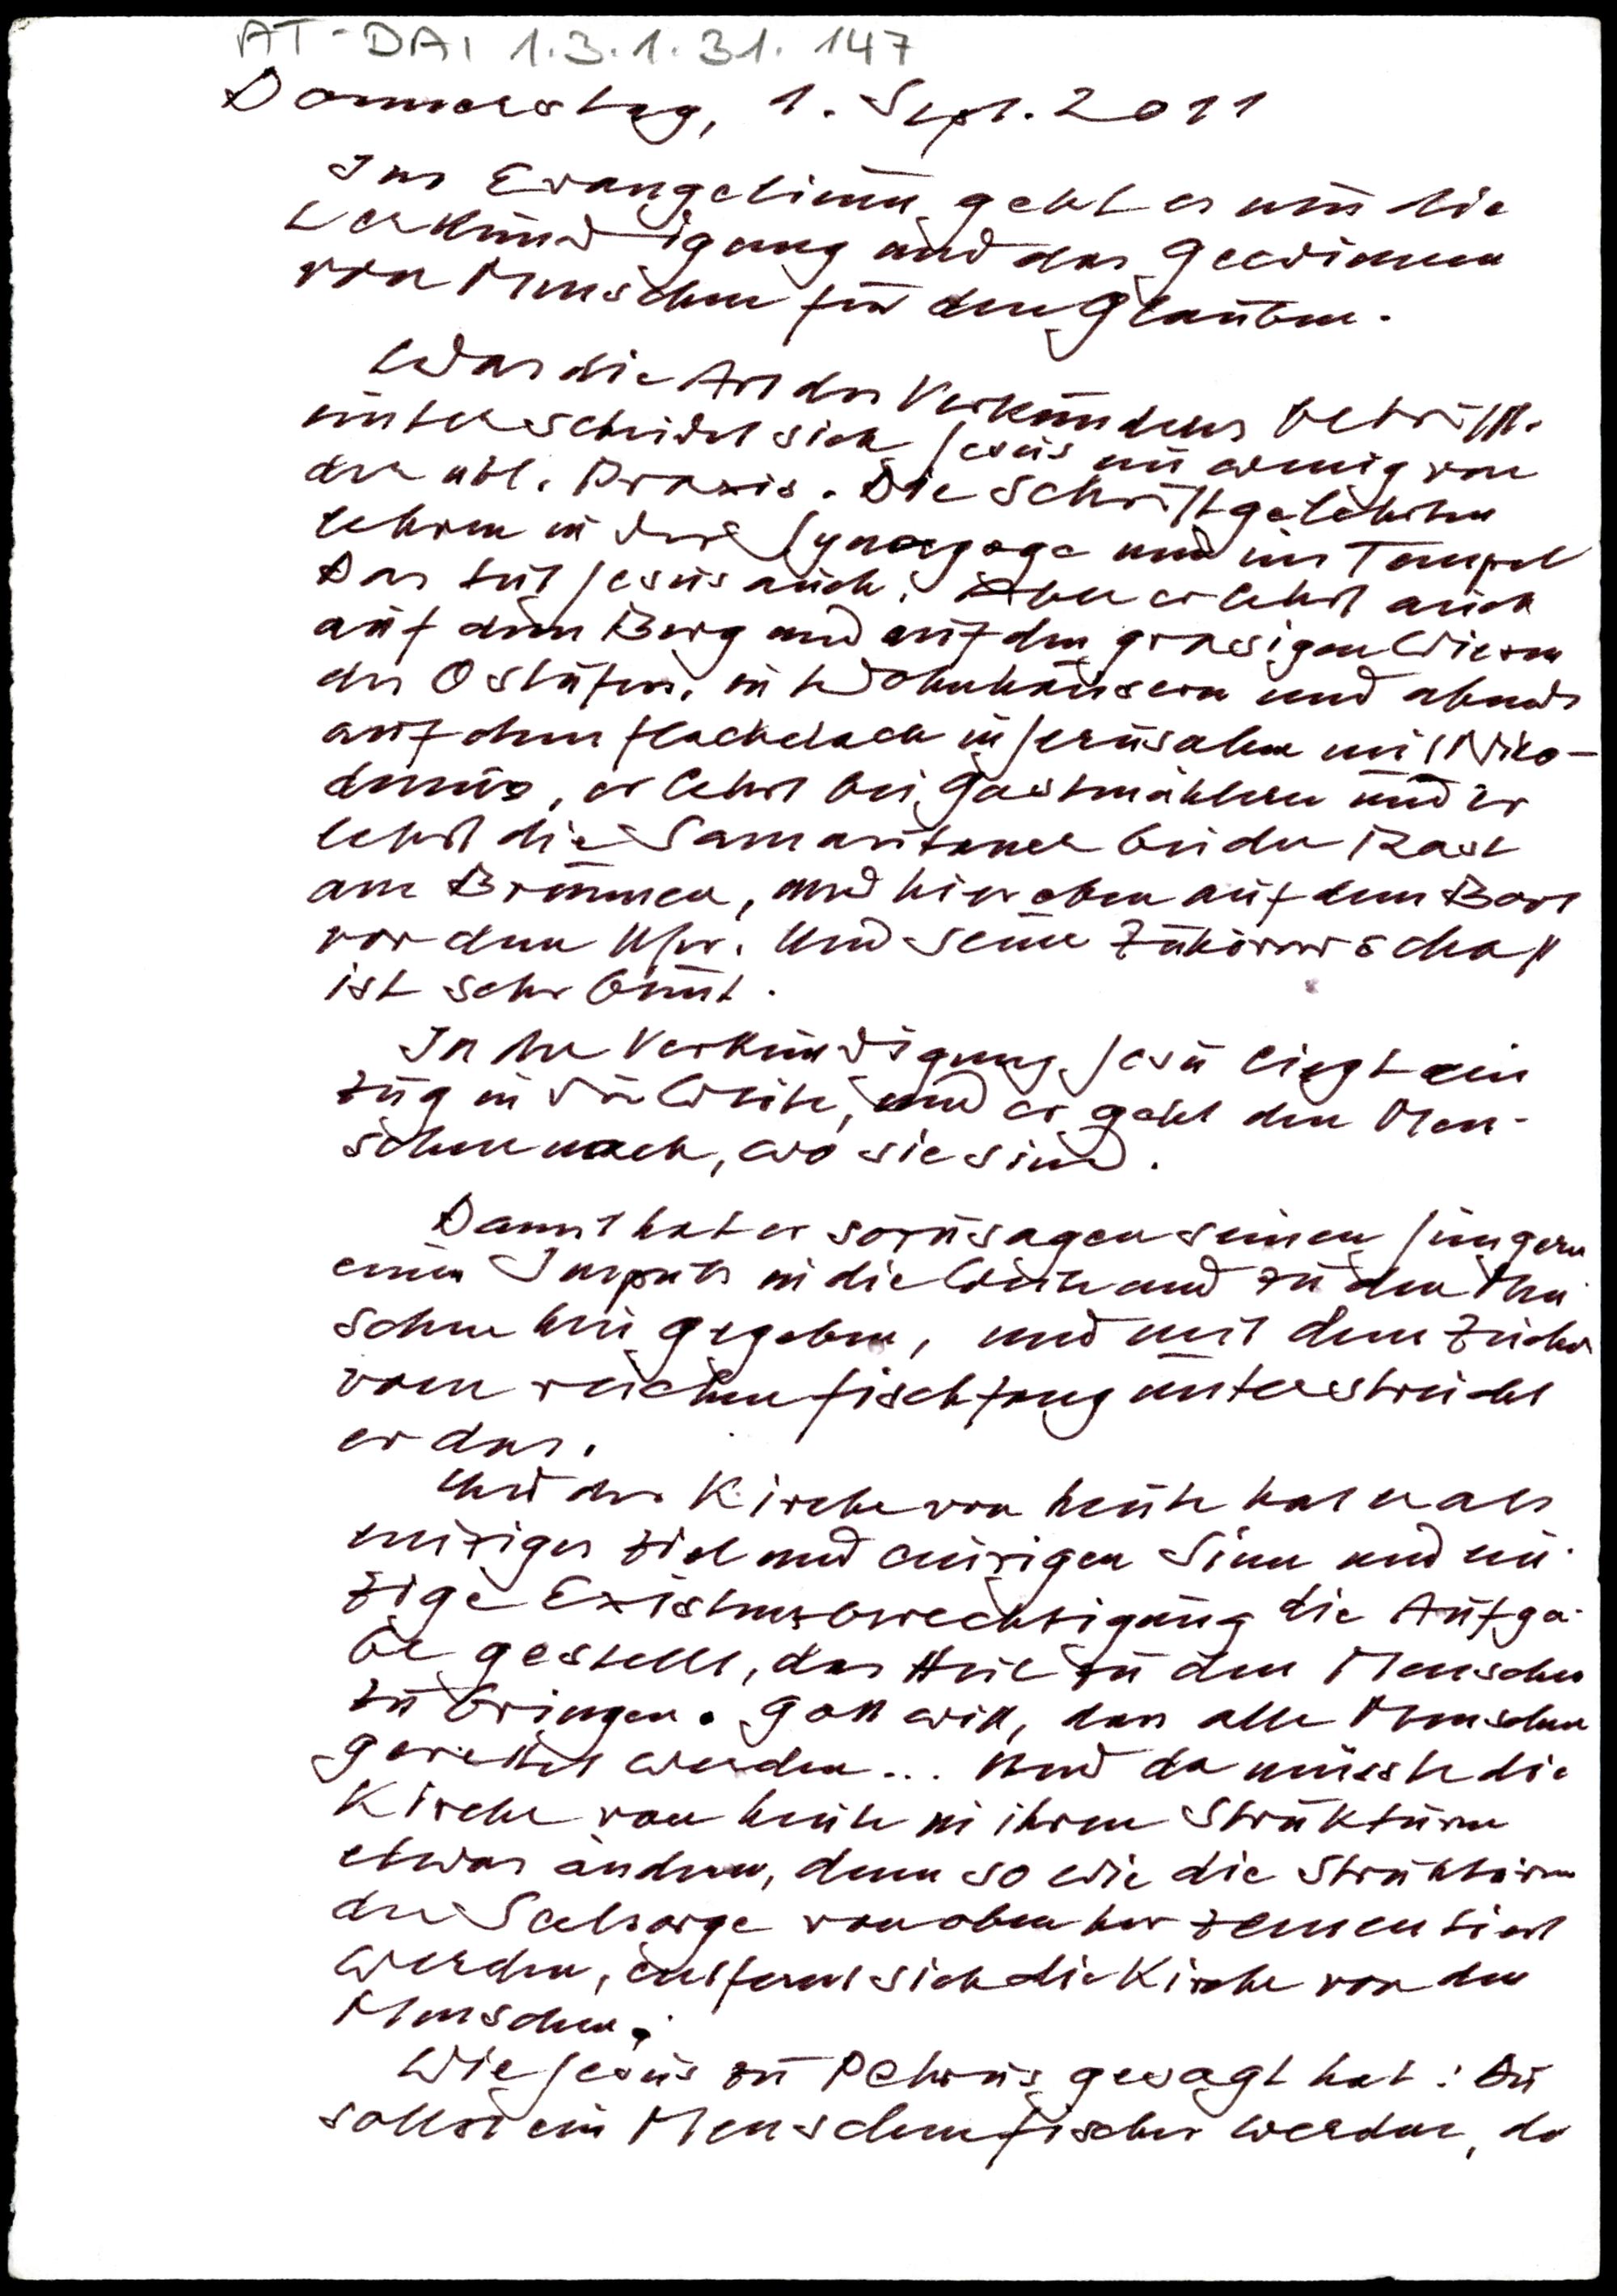 AT-DAI 1.3.1.31.147
Donnerstag, 1. Sept. 2011
Im Evangelium geht es um die
Verkündigung und das Gewinnen
von Menschen für den Glauben.
Was die Art des Verkündens betrifft,
unterscheidet sich Jesus ein wenig von
der übl. Praxis. Die Schriftgelehrten
lehren in der Synagoge und im Tempel
Das tut Jesus auch. Aber er lehrt auch
auf dem Berg und auf den grasigen Wiesen
des Ostufers, in Wohnhäusern und abends
auf dem Flachdach in Jerusalem mit Niko-
demus, er lehrt bei Gastmählern und er
lehrt die Samaritaner bei der Rast
am Brunnen, und hier eben auf dem Boot
vor dem Ufer. Und seine Zuhörerschaft
ist sehr bunt.
In der Verkündigung Jesu liegt ein
Zug in die Weite, und er geht den Men-
schen nach, wo sie sind.
Damit hat er sozusagen seinen Jüngern
einen Impuls in die Weite und zu den Men
schen hin gegeben, und mit dem Zeichen
vom reichen Fischfang unterstreicht
er das.
Und der Kirche von heute hat er als
einziges Ziel und einzigen Sinn und ein-
zige Existenzberechtigung die Aufga-
be gestellt, das Heil zu den Menschen
zu bringen. Gott will, dass alle Menschen
gerettet werden... Und da müsste die
Kirche von heute in ihren Strukturen
etwas ändern, denn so wie die Strukturen
der Seelsorge von oben her zementiert
werden, entfernt sich die Kirche von den
Menschen.
Wie Jesus zu Petrus gesagt hat: Du
sollst ein Menschenfischer werden, da